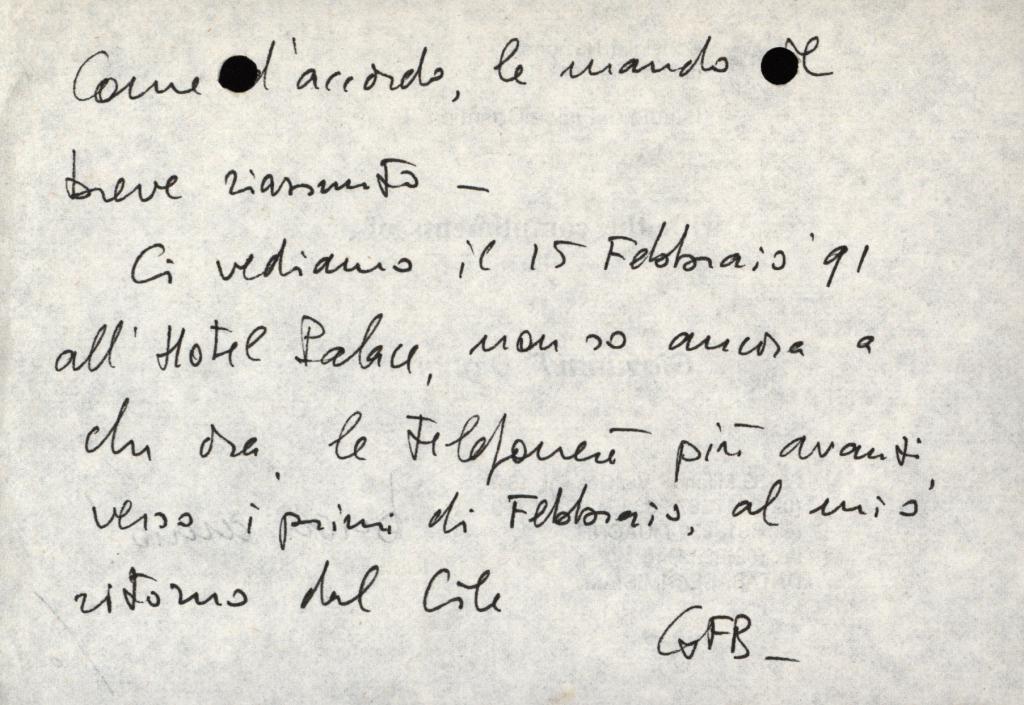 Come d'accordo, le mando il
breve riassunto -
Ci vediamo il 15 Febbraio '91
all'Hotel Palace, non so ancora a
che ora, le telefonerò più avanti,
verso i primi di Febbraio, al mio
ritorno dal Cile
GFB -